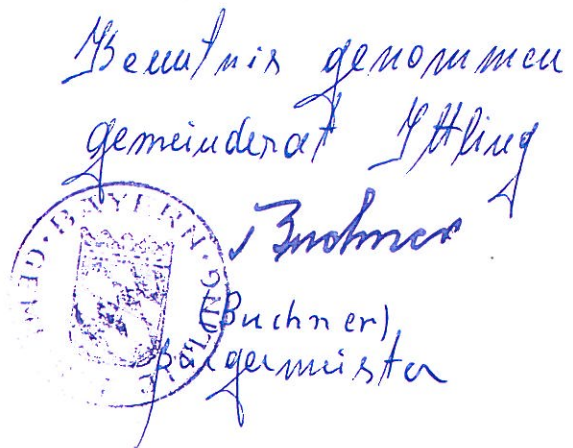 Kenntnis genommen
gemeinderat Ittling
Buchner
(Buchner)
Bürgermeister
BAYERN